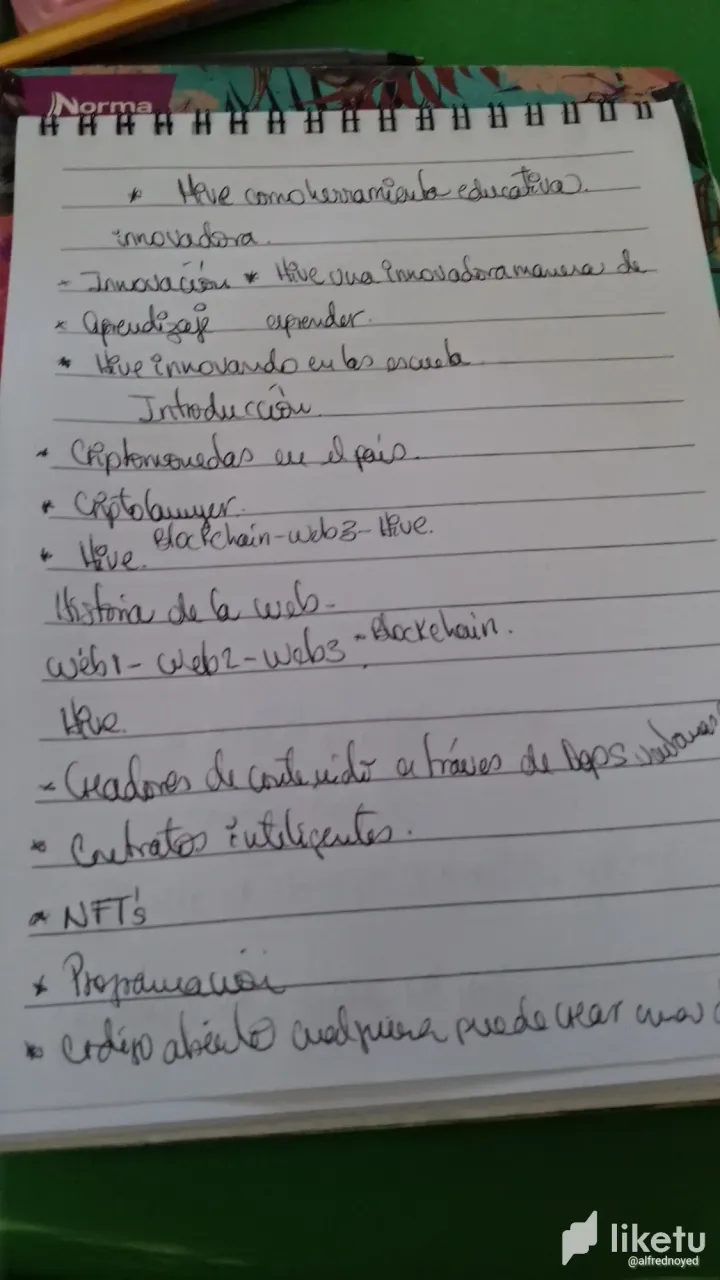 Norma
* Hive como herramienta educativa.
innovadora.
- Innovación * Hive una innovadora manera de
* aprendizaje aprender.
* Hive innovando en las escuela
Introducción.
* Criptomonedas en el país.
* Criptolawyer.
* Hive. Blockchain-Web3-Hive.
Historia de la web-
Web1- Web2-Web3 -Blockehain.
Hive.
- Creadores de contenido a tráves de Dapps
* Contratos inteligentes.
* NFT's
* Programación
* codigo abierto cualquiera puede crear una
liketu
@alfrednoyed